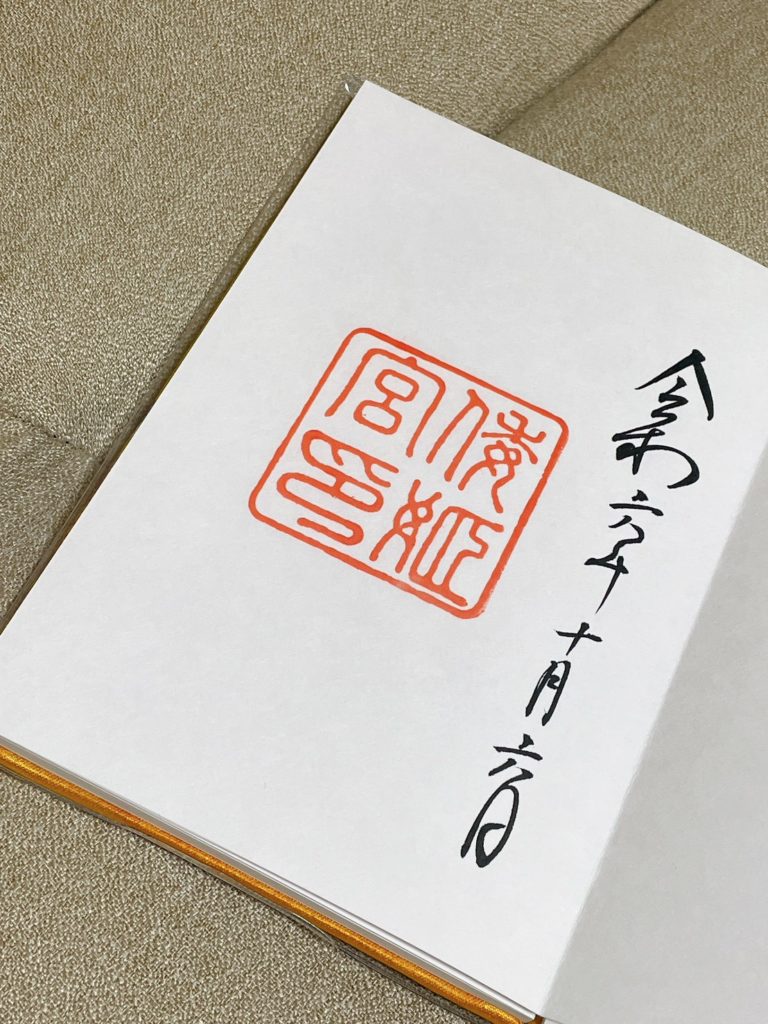 令和六年十月六日
倭姫
宮印